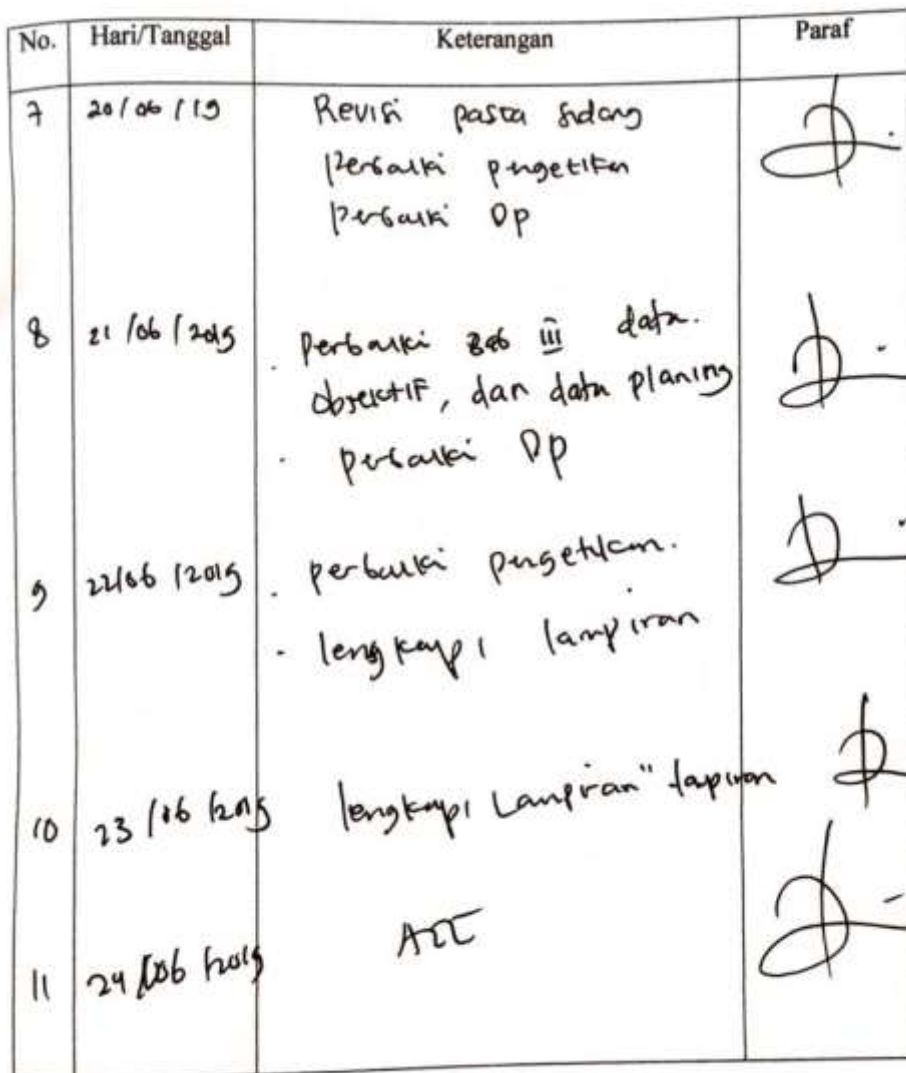 No. Hari/Tanggal Keterangan Paraf
7 20/06/19 Revisi pasca sidang
Perbaiki pengetikan
Perbaiki Dp
8 21/06/2019 . perbaiki Bab III data.
objektif, dan data planing
. perbaiki Dp
9 22/06/2019 . perbaiki pengetikan.
. lengkapi lampiran
10 23/06/2019 lengkapi Lampiran"
11 24/06/2019 ACC